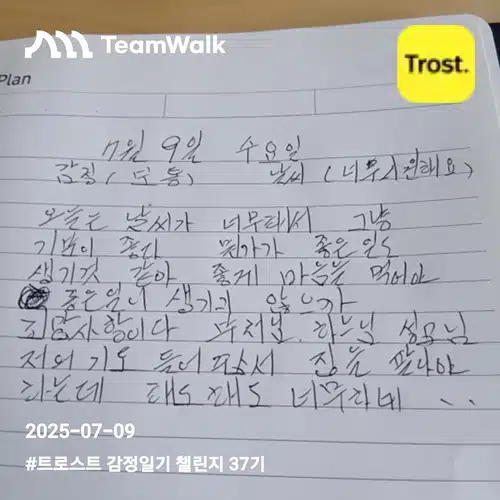 TeamWalk
Trost.
Plan
7월 9일 수요일
감정 (보통) 날씨 (너무시원해요)
오늘은 날씨가 너무 그냥
기분이 좋다 뭔가가 좋은일도
생기것 같아 좋게 마음을 먹어야
좋은일이 생기지 않으까
희망사항이다 하느님 성모님
저의 기도 들어 집을 팔아야
하는데 너무하네 ..
2025-07-09
#트로스트 감정일기 챌린지 37기